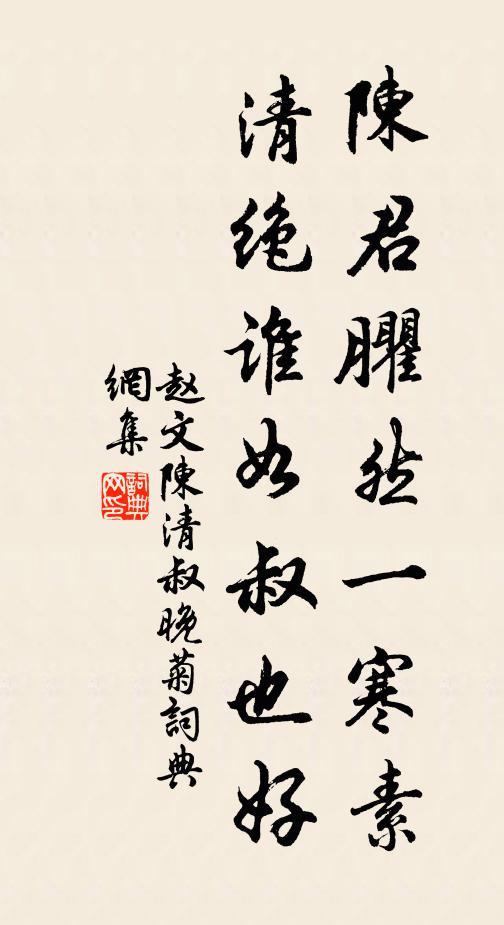 陳君臞然一寒素
清绝誰如叔也好
赵文陳清叔晚菊詞典
網集
詞典
网印